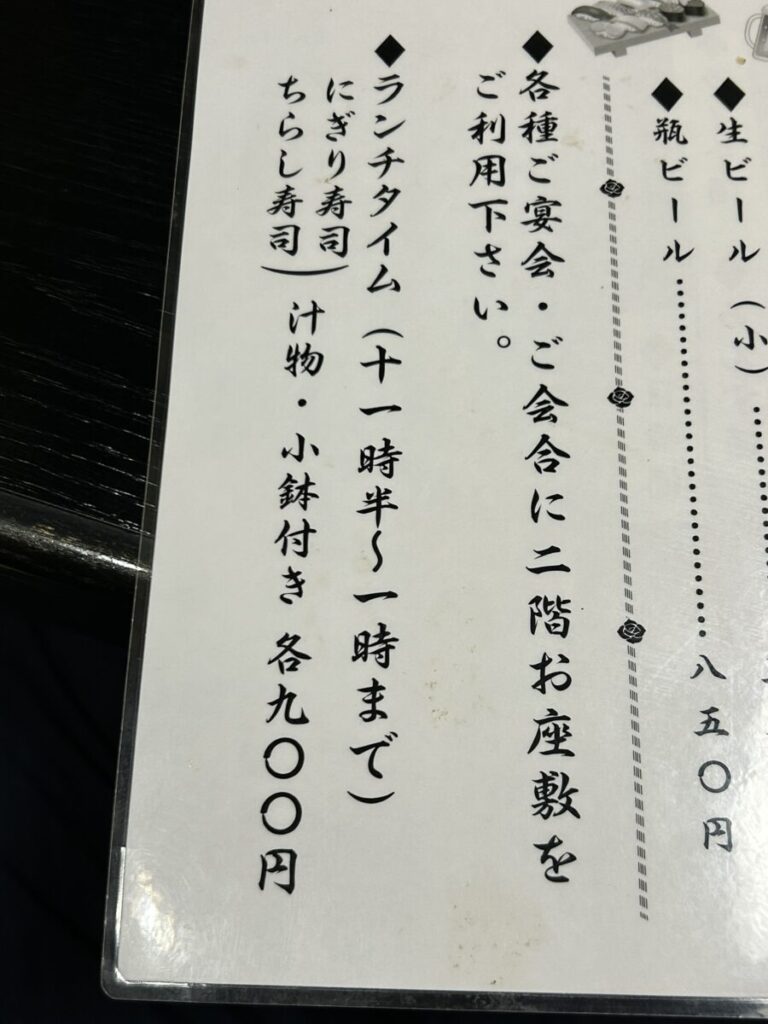 ◆生ビール(小)
◆瓶ビール……………………八五〇円
◆各種ご宴会・ご会合に二階お座敷を
ご利用下さい。
◆ランチタイム(十一時半〜一時まで)
にぎり寿司
ちらし寿司
汁物・小鉢付き 各九〇〇円